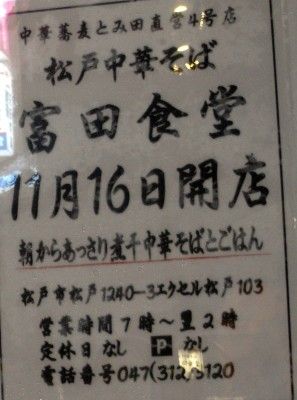 中華蕎麦とみ田直営4号店
松戸中華そば
富田食堂
11月16日開店
朝からあっさり煮干中華そばとごはん
松戸市松戸1240-3エクセル松戸103
営業時間7時〜翌2時
定休日なし P なし
電話番号047(312)3120